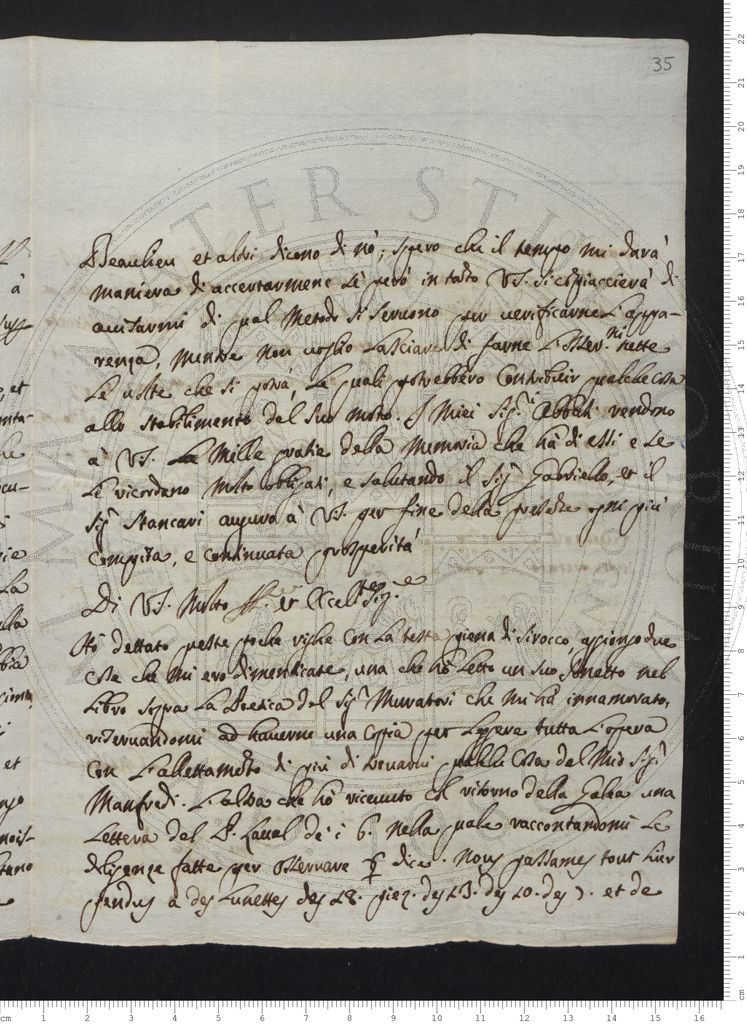 35
Beaulieu et altri dicono di nò; spero che il tempo mi darà
maniera di accertarmene se però in tanto VS. si compiaccierà di
avisarmi di qual Metodo si servono per verificarne l'appa-
renza, mentre non voglio lasciare di farne l'osser.ni tutte
le volte che si potrà, le quali potrebbero contribuir qualche cosa
allo stabilimento del suo moto. I Miei Sig.ri Abbati rendono
à VS. Mille gratie della Memoria che hà di essi e se
le ricordano molto obligati, e salutando il Sig.r Gabriello, et il
Sig.r Stancari auguro à VS. per fine della presente ogni più
compita, e continuata prosperità
Di VS. Molto Ill. et Eccel.ma Sig.re
Hò dettato queste poche righe con la testa piena di sirocco, aggiongo due
cose che mi ero dimenticate, una che hò letto un suo sonetto nel
libro sopra la Poetica del Sig.r Muratori che mi hà innamorato,
riservandomi ad haverne una copia per leggere tutta l'opera
con l'allettamento di più di trovarvi qualche cosa del mio Sig.r
Manfredi. L'altra che hò ricevuto col ritorno della Galea una
lettera del P. Laval de i 6. nella quale raccontandomi le
diligenze fatte per osservare ♀ dice. Nous passames tout
pendus a des Lunettes des 18. piez. des 13. des 10. des 7. et de
à
et
La
et